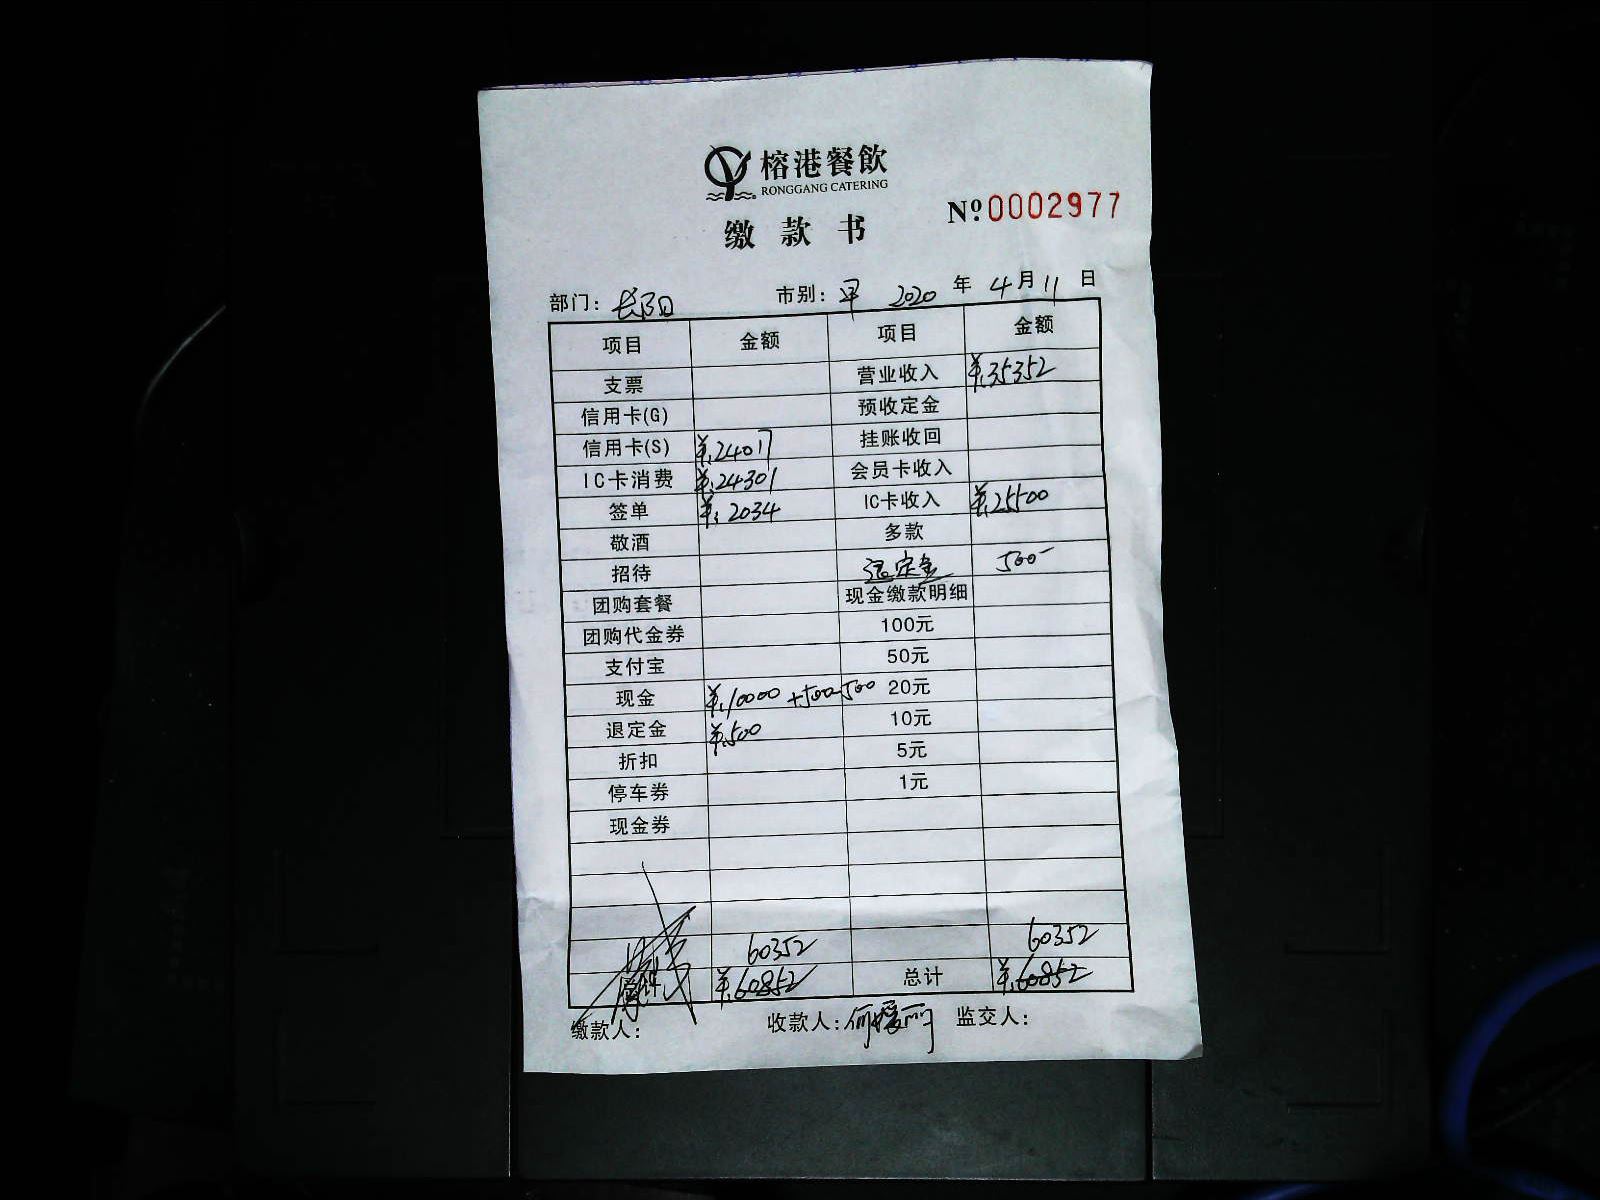 榕港餐飲
RONGGANG CATERING
缴款书
Nº:0002977
部门：长阳 市别：早 2020 年 4月11日
项目 金额 项目 金额
支票 营业收入 ¥:35352
信用卡(G) 预收定金
信用卡(S) ¥:24017 挂账收回
IC卡消费 ¥:24301 会员卡收入
签单 ¥:2034 IC卡收入 ¥:25500
敬酒 多款
招待 退定金 500-
团购套餐 现金缴款明细
团购代金券 100元
支付宝 50元
现金 ¥:10000 +500-500 20元
退定金 ¥:500 10元
折扣 5元
停车券 1元
现金券
60352 60352
¥:60852 总计 ¥:60852
缴款人： 收款人：何媛丽 监交人：